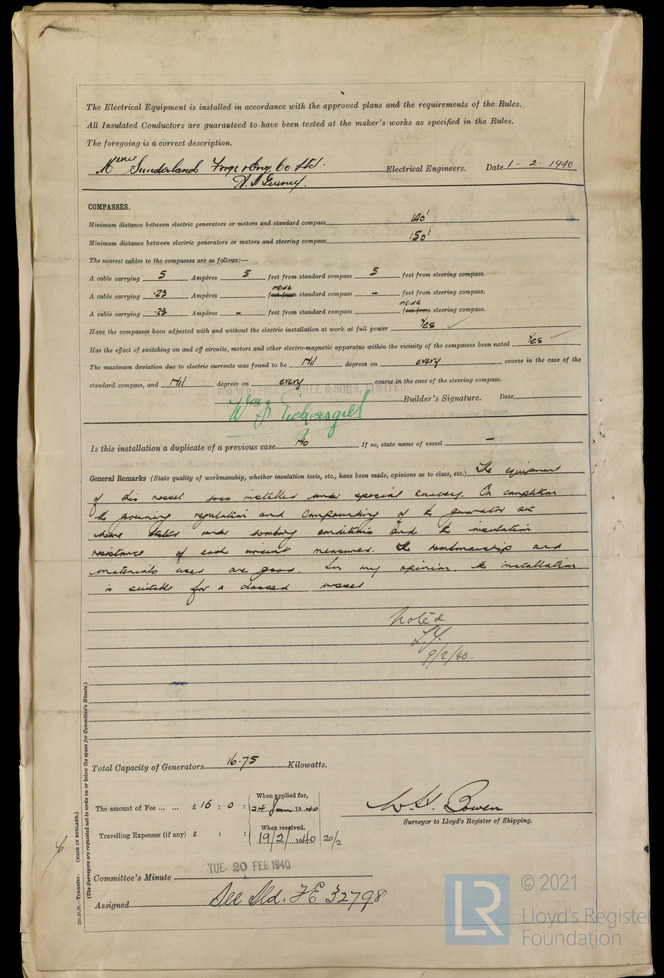 The Electrical Equipment is installed in accordance with the approved plans and the requirements of the Rules.
All Insulated Conductors are guaranteed to have been tested at the maker's works as specified in the Rules.
The foregoing is a correct description.
Sunderland Forge & Eng. Co Ltd. Electrical Engineers. Date 1-2-1940
COMPASSES.
Minimum distance between electric generators or motors and standard compass 140'
Minimum distance between electric generators or motors and steering compass 150'
The nearest cables to the compasses are as follows:—
A cable carrying 5 Ampères 5 feet from standard compass 5 feet from steering compass.
A cable carrying .23 Ampères inside feet from standard compass - feet from steering compass.
A cable carrying .23 Ampères - feet from standard compass inside feet from steering compass.
Have the compasses been adjusted with and without the electric installation at work at full power Yes
Has the effect of switching on and off circuits, motors and other electro-magnetic apparatus within the vicinity of the compasses been noted Yes
The maximum deviation due to electric currents was found to be Nil degrees on every course in the case of the
standard compass, and Nil degrees on every course in the case of the steering compass.
& SONS, LIMITED
Wm. J. Pickersgill Builder's Signature. Date
Director.
Is this installation a duplicate of a previous case No If so, state name of vessel -
General Remarks (State quality of workmanship, whether insulation tests, etc., have been made, opinions as to class, etc.) The equipment
of this vessel was installed under special survey. On completion
the governing regulation and compounding of the generator sets
were tested under working conditions and the insulation
resistance of each circuit measured. The workmanship and
materials used are good. In my opinion, the installation
is suitable for a classed vessel
Noted
9/2/40.
Total Capacity of Generators 16.75 Kilowatts.
The amount of Fee ... ... £ 16 : 0 :
When applied for,
24 Jan 1940
Travelling Expenses (if any) £ : :
When received,
19/2/1940 20/2
W. G. Bowen
Surveyor to Lloyd's Register of Shipping.
TUE. 20 FEB 1940
Committee's Minute
Assigned See Sld. F.E. 32798
(The Surveyors are requested not to write on or below the space for Committee's Minute.)
Transfer. (MADE IN ENGLAND.)
LR
© 2021
Lloyd's Register
Foundation